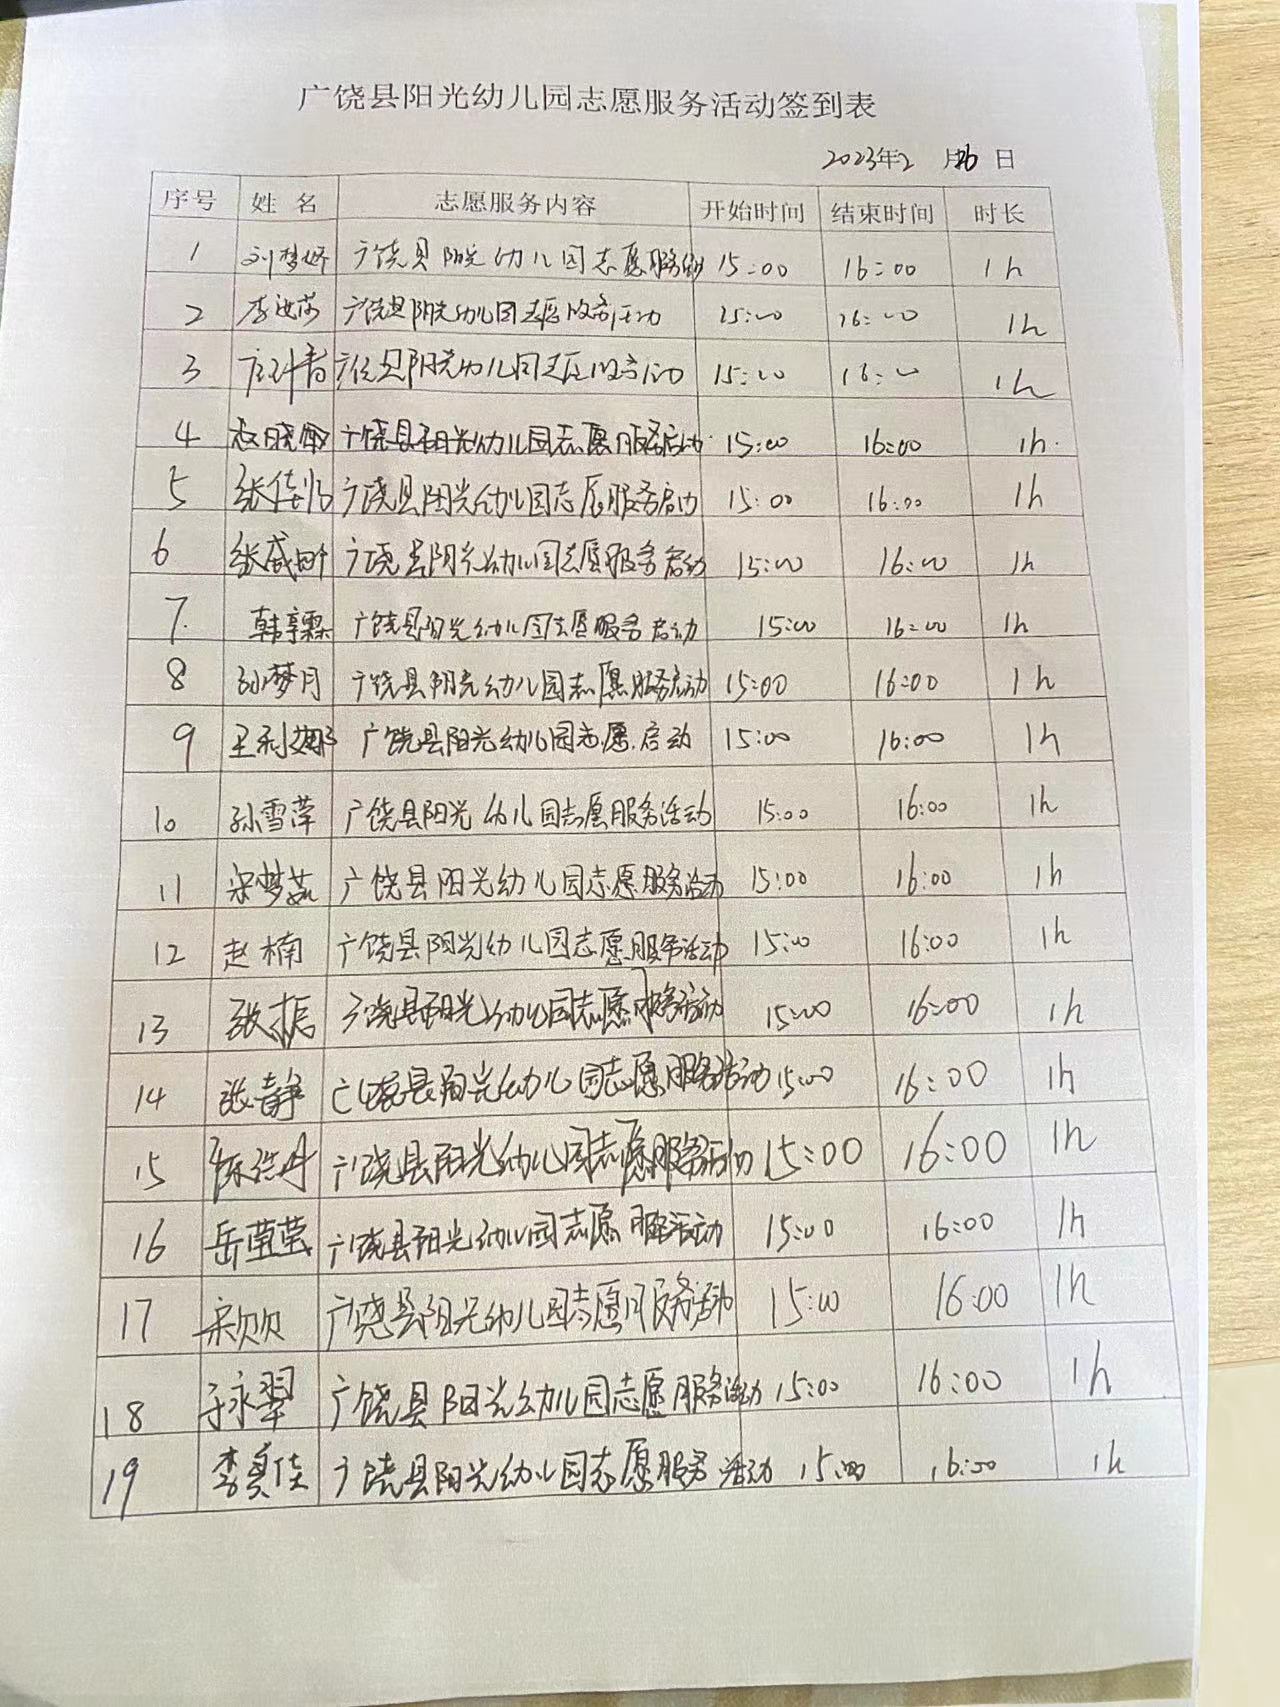 广饶县阳光幼儿园志愿服务活动签到表
2023年2月26日
序号 姓名 志愿服务内容 开始时间 结束时间 时长
1 刘梦娇 广饶县阳光幼儿园志愿服务 15:00 16:00 1h
2 李 广饶县阳光幼儿园志愿服务活动 15:00 16:00 1h
3 广饶县阳光幼儿园志愿服务活动 15:00 16:00 1h
4 赵晓 广饶县阳光幼儿园志愿服务启动 15:00 16:00 1h
5 张佳 广饶县阳光幼儿园志愿服务启动 15:00 16:00 1h
6 张盛 广饶县阳光幼儿园志愿服务启动 15:00 16:00 1h
7 韩 广饶县阳光幼儿园志愿服务启动 15:00 16:00 1h
8 孙梦月 广饶县阳光幼儿园志愿服务启动 15:00 16:00 1h
9 王利娜 广饶县阳光幼儿园志愿启动 15:00 16:00 1h
10 孙雪萍 广饶县阳光幼儿园志愿服务活动 15:00 16:00 1h
11 宋梦茹 广饶县阳光幼儿园志愿服务活动 15:00 16:00 1h
12 赵楠 广饶县阳光幼儿园志愿服务活动 15:00 16:00 1h
13 张振 广饶县阳光幼儿园志愿服务活动 15:00 16:00 1h
14 张静 广饶县阳光幼儿园志愿服务活动 15:00 16:00 1h
15 广饶县阳光幼儿园志愿服务活动 15:00 16:00 1h
16 岳莹莹 广饶县阳光幼儿园志愿服务活动 15:00 16:00 1h
17 宋欣欣 广饶县阳光幼儿园志愿服务活动 15:00 16:00 1h
18 于永翠 广饶县阳光幼儿园志愿服务活动 15:00 16:00 1h
19 李真佳 广饶县阳光幼儿园志愿服务活动 15:00 16:00 1h